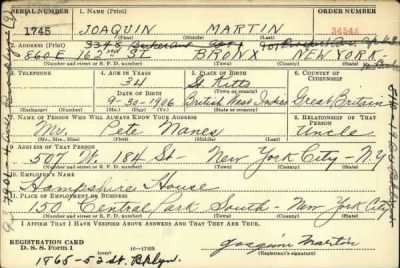 SERIAL NUMBER 1. NAME (Print) ORDER NUMBER
1745 JOAQUIN MARTIN 3454A
(First) (Middle) (Last)
2. ADDRESS (Print)
860 E 162nd St BRONX NEW YORK
(Number and street or R. F. D. number) (Town) (County) (State)
3. TELEPHONE 4. AGE IN YEARS 5. PLACE OF BIRTH 6. COUNTRY OF CITIZENSHIP
34 St. Kitts
DATE OF BIRTH (Town or county)
9-30-1906 British West Indies Great Britain
(Exchange) (Number) (Mo.) (Day) (Yr.) (State or country)
7. NAME OF PERSON WHO WILL ALWAYS KNOW YOUR ADDRESS 8. RELATIONSHIP OF THAT PERSON
Mr. Pete Manes Uncle
(Mr., Mrs., Miss) (First) (Middle) (Last)
9. ADDRESS OF THAT PERSON
507 W. 184 St - New York City - N.Y
(Number and street or R. F. D. number) (Town) (County) (State)
10. EMPLOYER'S NAME
Hampshire House
11. PLACE OF EMPLOYMENT OR BUSINESS
150 Central Park South - New York City
(Number and street or R. F. D. number) (Town) (County) (State)
I AFFIRM THAT I HAVE VERIFIED ABOVE ANSWERS AND THAT THEY ARE TRUE.
REGISTRATION CARD
D. S. S. Form 1 16-17105 Joaquin Martin
(Registrant's signature)
1865-53 St. Bklyn.